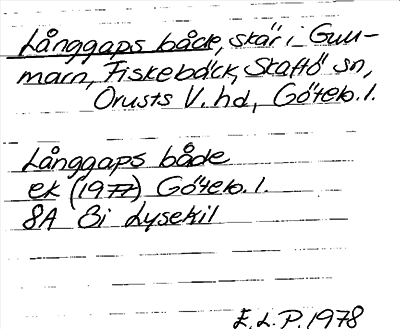 Långgaps både, skär i Gull-
marn, Fiskebäck, Skaftö sn,
Orusts V. hd, Göteb. l.
Långgaps både
ek (1977) Göteb. l.
8A 8i Lysekil
E.L.P. 1978